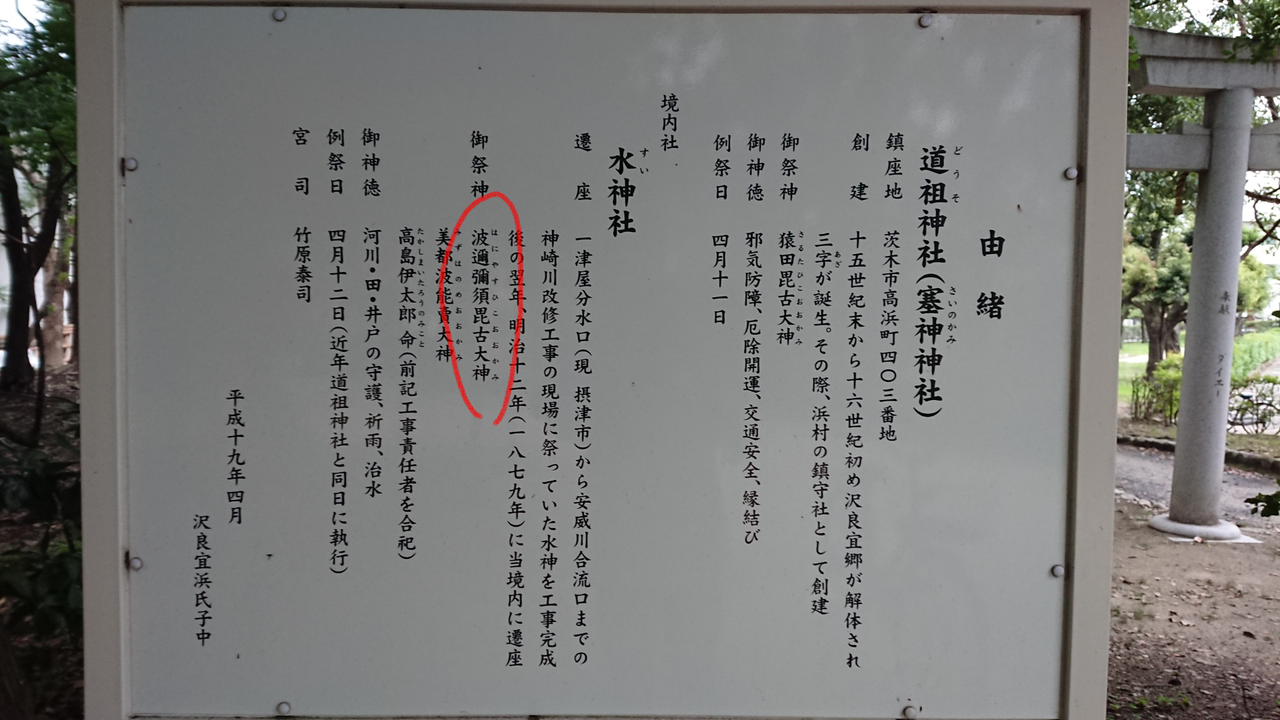 由緒
道祖神社(塞神神社)
どうそ
さいのかみ
鎮座地 茨木市高浜町四〇三番地
創建 十五世紀末から十六世紀初め沢良宜郷が解体され
三字が誕生。その際、浜村の鎮守社として創建
あざ
御祭神 猿田毘古大神
さるたひこおおかみ
御神徳 邪気防障、厄除開運、交通安全、縁結び
例祭日 四月十一日
境内社
水神社
すい
遷座 一津屋分水口(現 摂津市)から安威川合流口までの
神崎川改修工事の現場に祭っていた水神を工事完成
後の翌年、明治十二年(一八七九年)に当境内に遷座
御祭神 波邇彌須毘古大神
はにやすひこおおかみ
美都波能賣大神
みずはのめおおかみ
高島伊太郎命(前記工事責任者を合祀)
たかしまいたろうのみこと
御神徳 河川・田・井戸の守護、祈雨、治水
例祭日 四月十二日(近年道祖神社と同日に執行)
宮司 竹原泰司
平成十九年四月
沢良宜浜氏子中